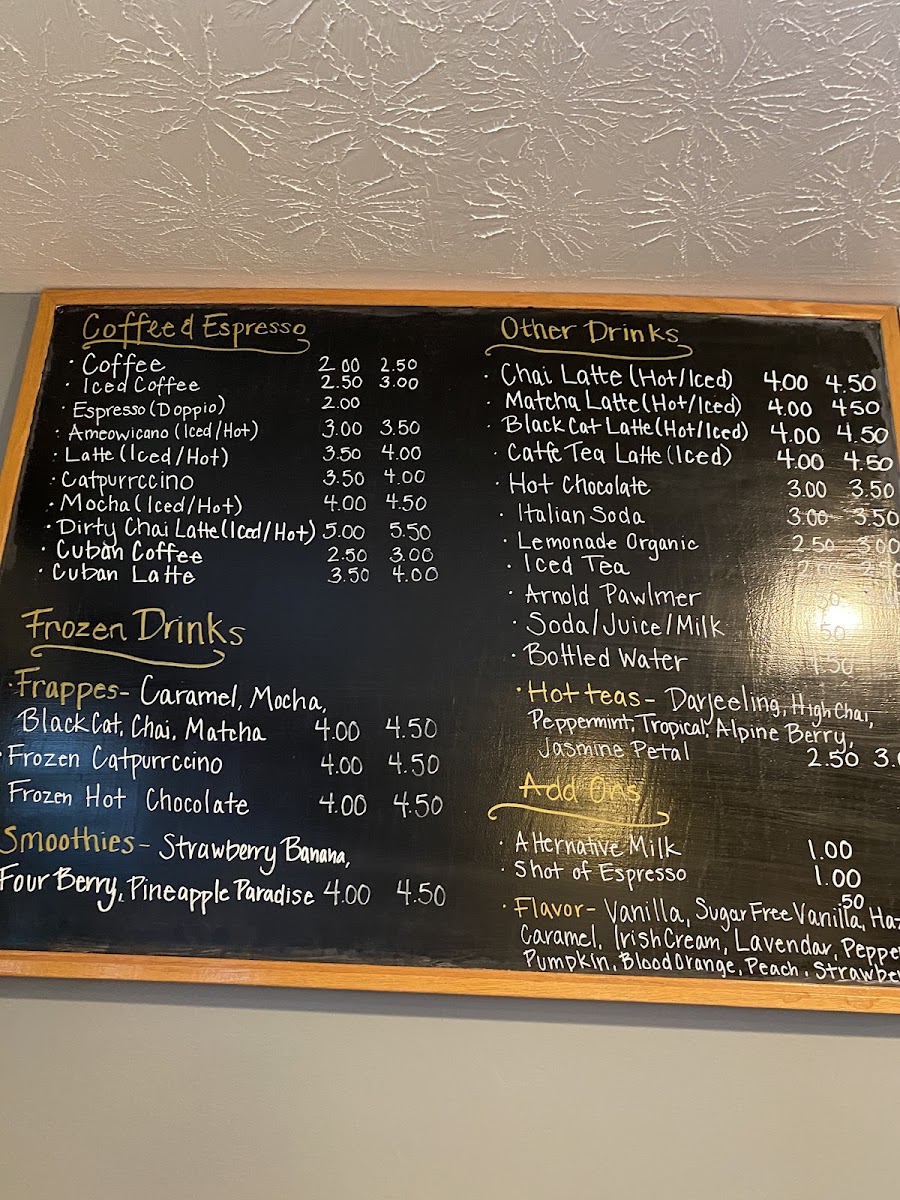 Coffee & Espresso
· Coffee 2.00 2.50
· Iced Coffee 2.50 3.00
· Espresso (Doppio) 2.00
· Ameowicano (Iced/Hot) 3.00 3.50
· Latte (Iced/Hot) 3.50 4.00
· Catpurrccino 3.50 4.00
· Mocha (Iced/Hot) 4.00 4.50
· Dirty Chai Latte (Iced/Hot) 5.00 5.50
· Cuban Coffee 2.50 3.00
· Cuban Latte 3.50 4.00
Frozen Drinks
· Frappes - Caramel, Mocha,
Black Cat, Chai, Matcha 4.00 4.50
· Frozen Catpurrccino 4.00 4.50
Frozen Hot Chocolate 4.00 4.50
Smoothies - Strawberry Banana,
Four Berry, Pineapple Paradise 4.00 4.50
Other Drinks
· Chai Latte (Hot/Iced) 4.00 4.50
· Matcha Latte (Hot/Iced) 4.00 4.50
· Black Cat Latte (Hot/Iced) 4.00 4.50
· Catfe Tea Latte (Iced) 4.00 4.50
· Hot Chocolate 3.00 3.50
· Italian Soda 3.00 3.50
· Lemonade Organic 2.50 3.00
· Iced Tea
· Arnold Pawlmer
· Soda/Juice/Milk
· Bottled Water 1.50
· Hot teas - Darjeeling, High Chai,
Peppermint, Tropical, Alpine Berry,
Jasmine Petal 2.50
Add Ons
· Alternative Milk 1.00
· Shot of Espresso 1.00
.50
· Flavor - Vanilla, Sugar Free Vanilla, Haz
Caramel, Irish Cream, Lavendar, Peppe
Pumpkin, Blood Orange, Peach, Strawber